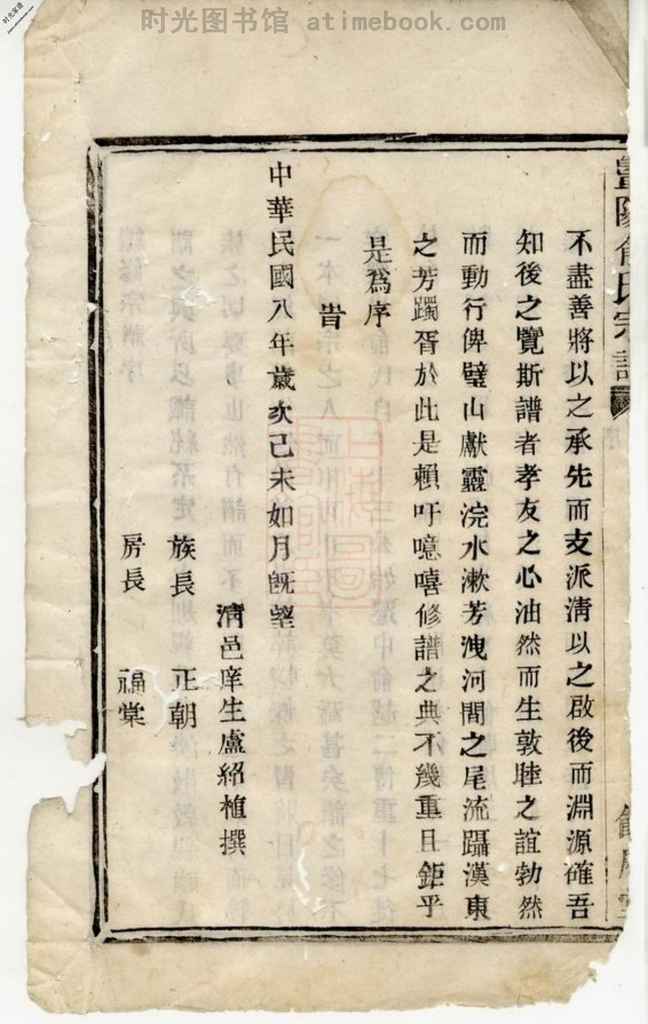 时光图书馆 - atimebook.com
时光家谱
不盡善將以之承先而支派淸以之啟後而淵源確吾
知後之覽斯譜者孝友之心油然而生敦睦之誼勃然
而動行俾璧山獻靈浣水漱芳洩河間之尾流躡漢東
之芳躅胥於此是賴吁噫嘻修譜之典不幾重且鉅乎
是爲序
旹
中華民國八年歲次己未如月旣望
淸邑庠生盧紹植撰
族長 正朝
房長 福棠